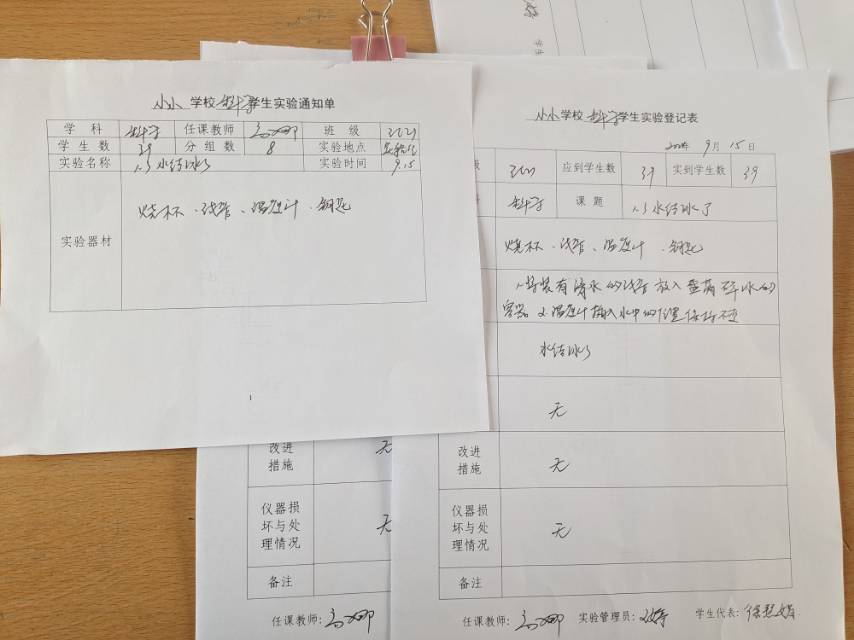 小小 学校 科学 学生实验通知单
学 科 科学 任课教师 班 级 2021
学 生 数 39 分 组 数 8 实验地点
实验名称 水结冰了 实验时间 9.15
实验器材 烧杯、试管、温度计、钢匙
小小 学校 科学 学生实验登记表
9 月 15 日
2021 应到学生数 39 实到学生数 39
科学 课 题 水结冰了
烧杯、试管、温度计、钢匙
1、将装有清水的试管放入盛满碎冰的
容器 2、温度计插入水中的位置保持不变
水结冰了
无
改进措施 无
仪器损坏与处理情况 无
备注
任课教师: 实验管理员: 学生代表:
改进措施 无
仪器损坏与处理情况 无
备注
任课教师: